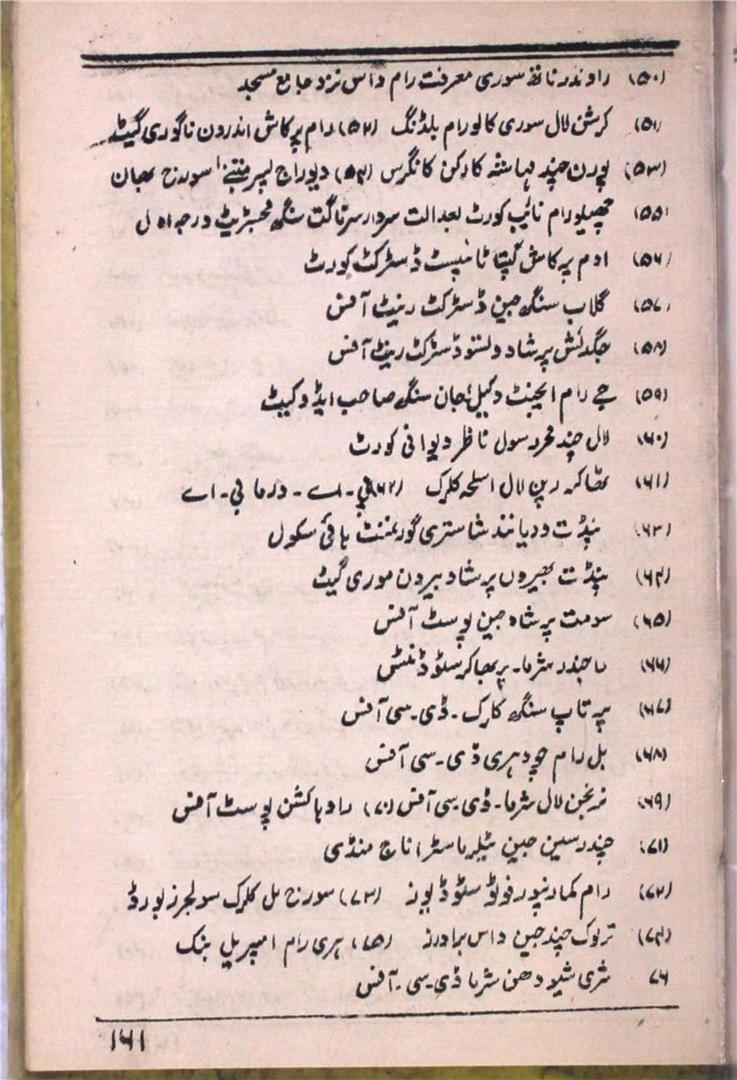 (۵۰) راوندر ناتھ سوری معرفت رام داس نزد جامع مسجد
(۵۱) کرشن لال سوری کالو رام بلڈنگ (۵۲) رام پرکاش اندرون ناگوری گیٹ
(۵۳) پورن چند مہاشہ کارکن کانگرس (۵۴) دیوراج لیسر منتہنے سورج بھان
(۵۵) چھیلو رام نائب کورٹ بعدالت سردار سرناگت سنگھ مجسٹریٹ درجہ اول
(۵۶) اوم پرکاش گپتا ٹائپسٹ ڈسٹرکٹ کورٹ
(۵۷) گلاب سنگھ جین ڈسٹرکٹ رینٹ آفس
(۵۸) جگدئش پرشاد ولستو ڈسٹرکٹ رینٹ آفس
(۵۹) جے رام ایجنٹ وکیل جان سنگھ صاحب ایڈوکیٹ
(۶۰) لال چند محرر سول ناظر دیوانی کورٹ
(۶۱) ٹھاکر رپن لال اسلحہ کلرک (۶۲) پی۔اے۔ ورما بی۔اے
(۶۳) پنڈت ودیانند شاستری گورنمنٹ ہائی سکول
(۶۴) پنڈت بھیروں پرشاد بیرون موری گیٹ
(۶۵) سومت پرشاد جین پوسٹ آفس
(۶۶) ماجندر شرما۔ پربھاکر سٹوڈنٹس
(۶۷) پرتاپ سنگھ کلرک۔ ڈی۔سی آفس
(۶۸) بل رام چودہری ڈی۔سی آفس
(۶۹) نرنجن لال شرما۔ ڈی سی آفس (۷۰) رادہاکشن پوسٹ آفس
(۷۱) چندرسین جین ٹیلر ماسٹر اناج منڈی
(۷۲) رام کمار نپور فوٹو سٹوڈیوز (۷۳) سورج مل کلرک سولجرز بورڈ
(۷۴) ترلوک چند جین داس برادرز (۷۵) ہری رام امپریل بنک
۷۶ شری شیودھن شرما ڈی۔سی۔آفس
۱۶۱